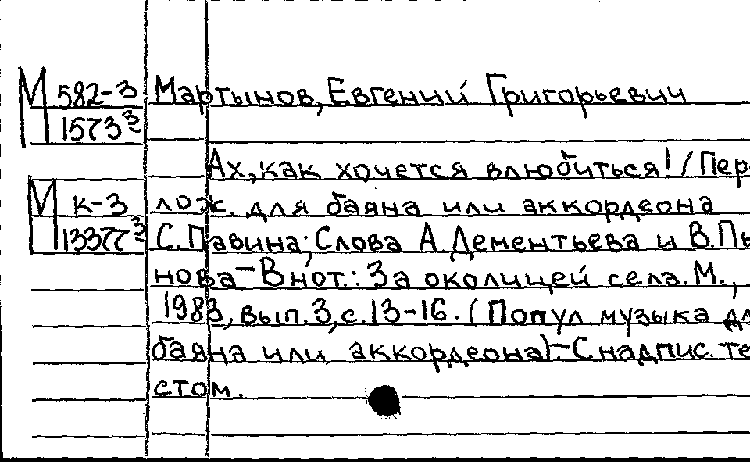 М 582-3 Мартынов, Евгений Григорьевич
1573³
Ах, как хочется влюбиться! / Пер
М к-3 лож. для баяна или аккордеона
С. Павина; Слова А. Дементьева и В.
нова - В нот.: За околицей села. М.,
1983, вып. 3, с. 13-16. (Попул музыка дл
баяна или аккордеона) - С надпис. те
стом.